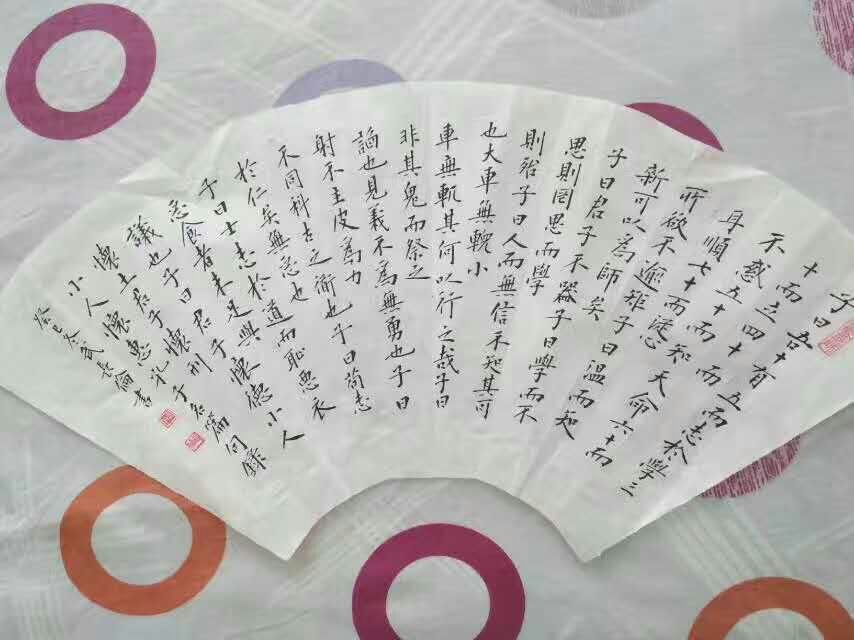 子曰吾十有五而志於學三
十而立四十而
不惑五十而知天命六十而
耳順七十而從心
所欲不逾矩子曰溫而知
新可以為師矣
子曰君子不器子曰學而不
思則罔思而學
則殆子曰人而無信不知其可
也大車無輗小
車無軏其何以行之哉子曰
非其鬼而祭之
諂也見義不為無勇也子曰
射不主皮為力
不同科古之衜也子曰苟志
於仁矣無惡也
子曰士志於道而恥惡衣
惡食者未足與
議也子曰君子懷德小人
懷土君子懷刑
小人懷惠孔子名篇句錄
癸巳冬武長倫書